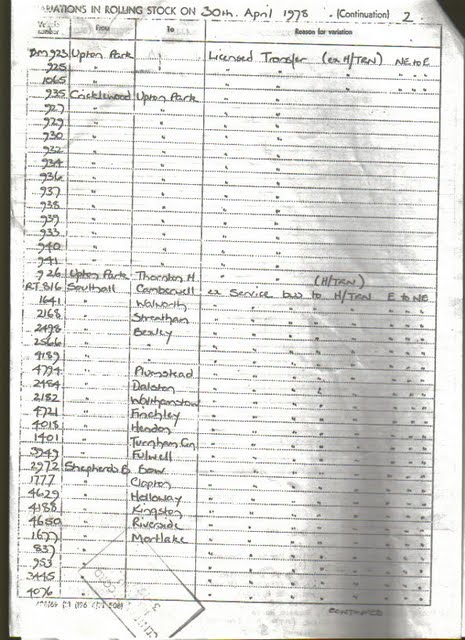 VARIATIONS IN ROLLING STOCK ON 30th April 1978 . (Continuation) 2
Vehicle number From To Reason for variation
BM 923 Upton Park " Licensed Transfer (ex H/TRN) NE to E
925 " " " " " " " "
1065 " " " " " " " "
935 Cricklewood Upton Park " "
927 " " " "
929 " " " "
930 " " " "
932 " " " "
934 " " " "
936 " " " "
937 " " " "
938 " " " "
939 " " " "
933 " " " "
940 " " " "
941 " " " "
926 Upton Park Thornton H. " " (H/TRN)
RT 816 Southall Camberwell ex Service bus to H/TRN E to NE
1641 " Walworth " " " " " " " "
2168 " Streatham " " " " " " " "
2498 " Bexley " " " " " " " "
2566 " " " " " " " " " "
4189 " " " " " " " " " "
4794 " Plumstead " " " " " " " "
2484 " Dalston " " " " " " " "
2182 " Walthamstow " " " " " " " "
4721 " Finchley " " " " " " " "
4018 " Hendon " " " " " " " "
1401 " Turnham Gn " " " " " " " "
3949 " Fulwell " " " " " " " "
2972 Shepherds B Bow " " " " " " " "
1777 " Clapton " " " " " " " "
4629 " Holloway " " " " " " " "
4188 " Kingston " " " " " " " "
4650 " Riverside " " " " " " " "
1677 " Mortlake " " " " " " " "
837 " " " " " " " "
953 " " " " " " " "
3445 " " " " " " " "
4076 " " " " " " " "
CONTINUED